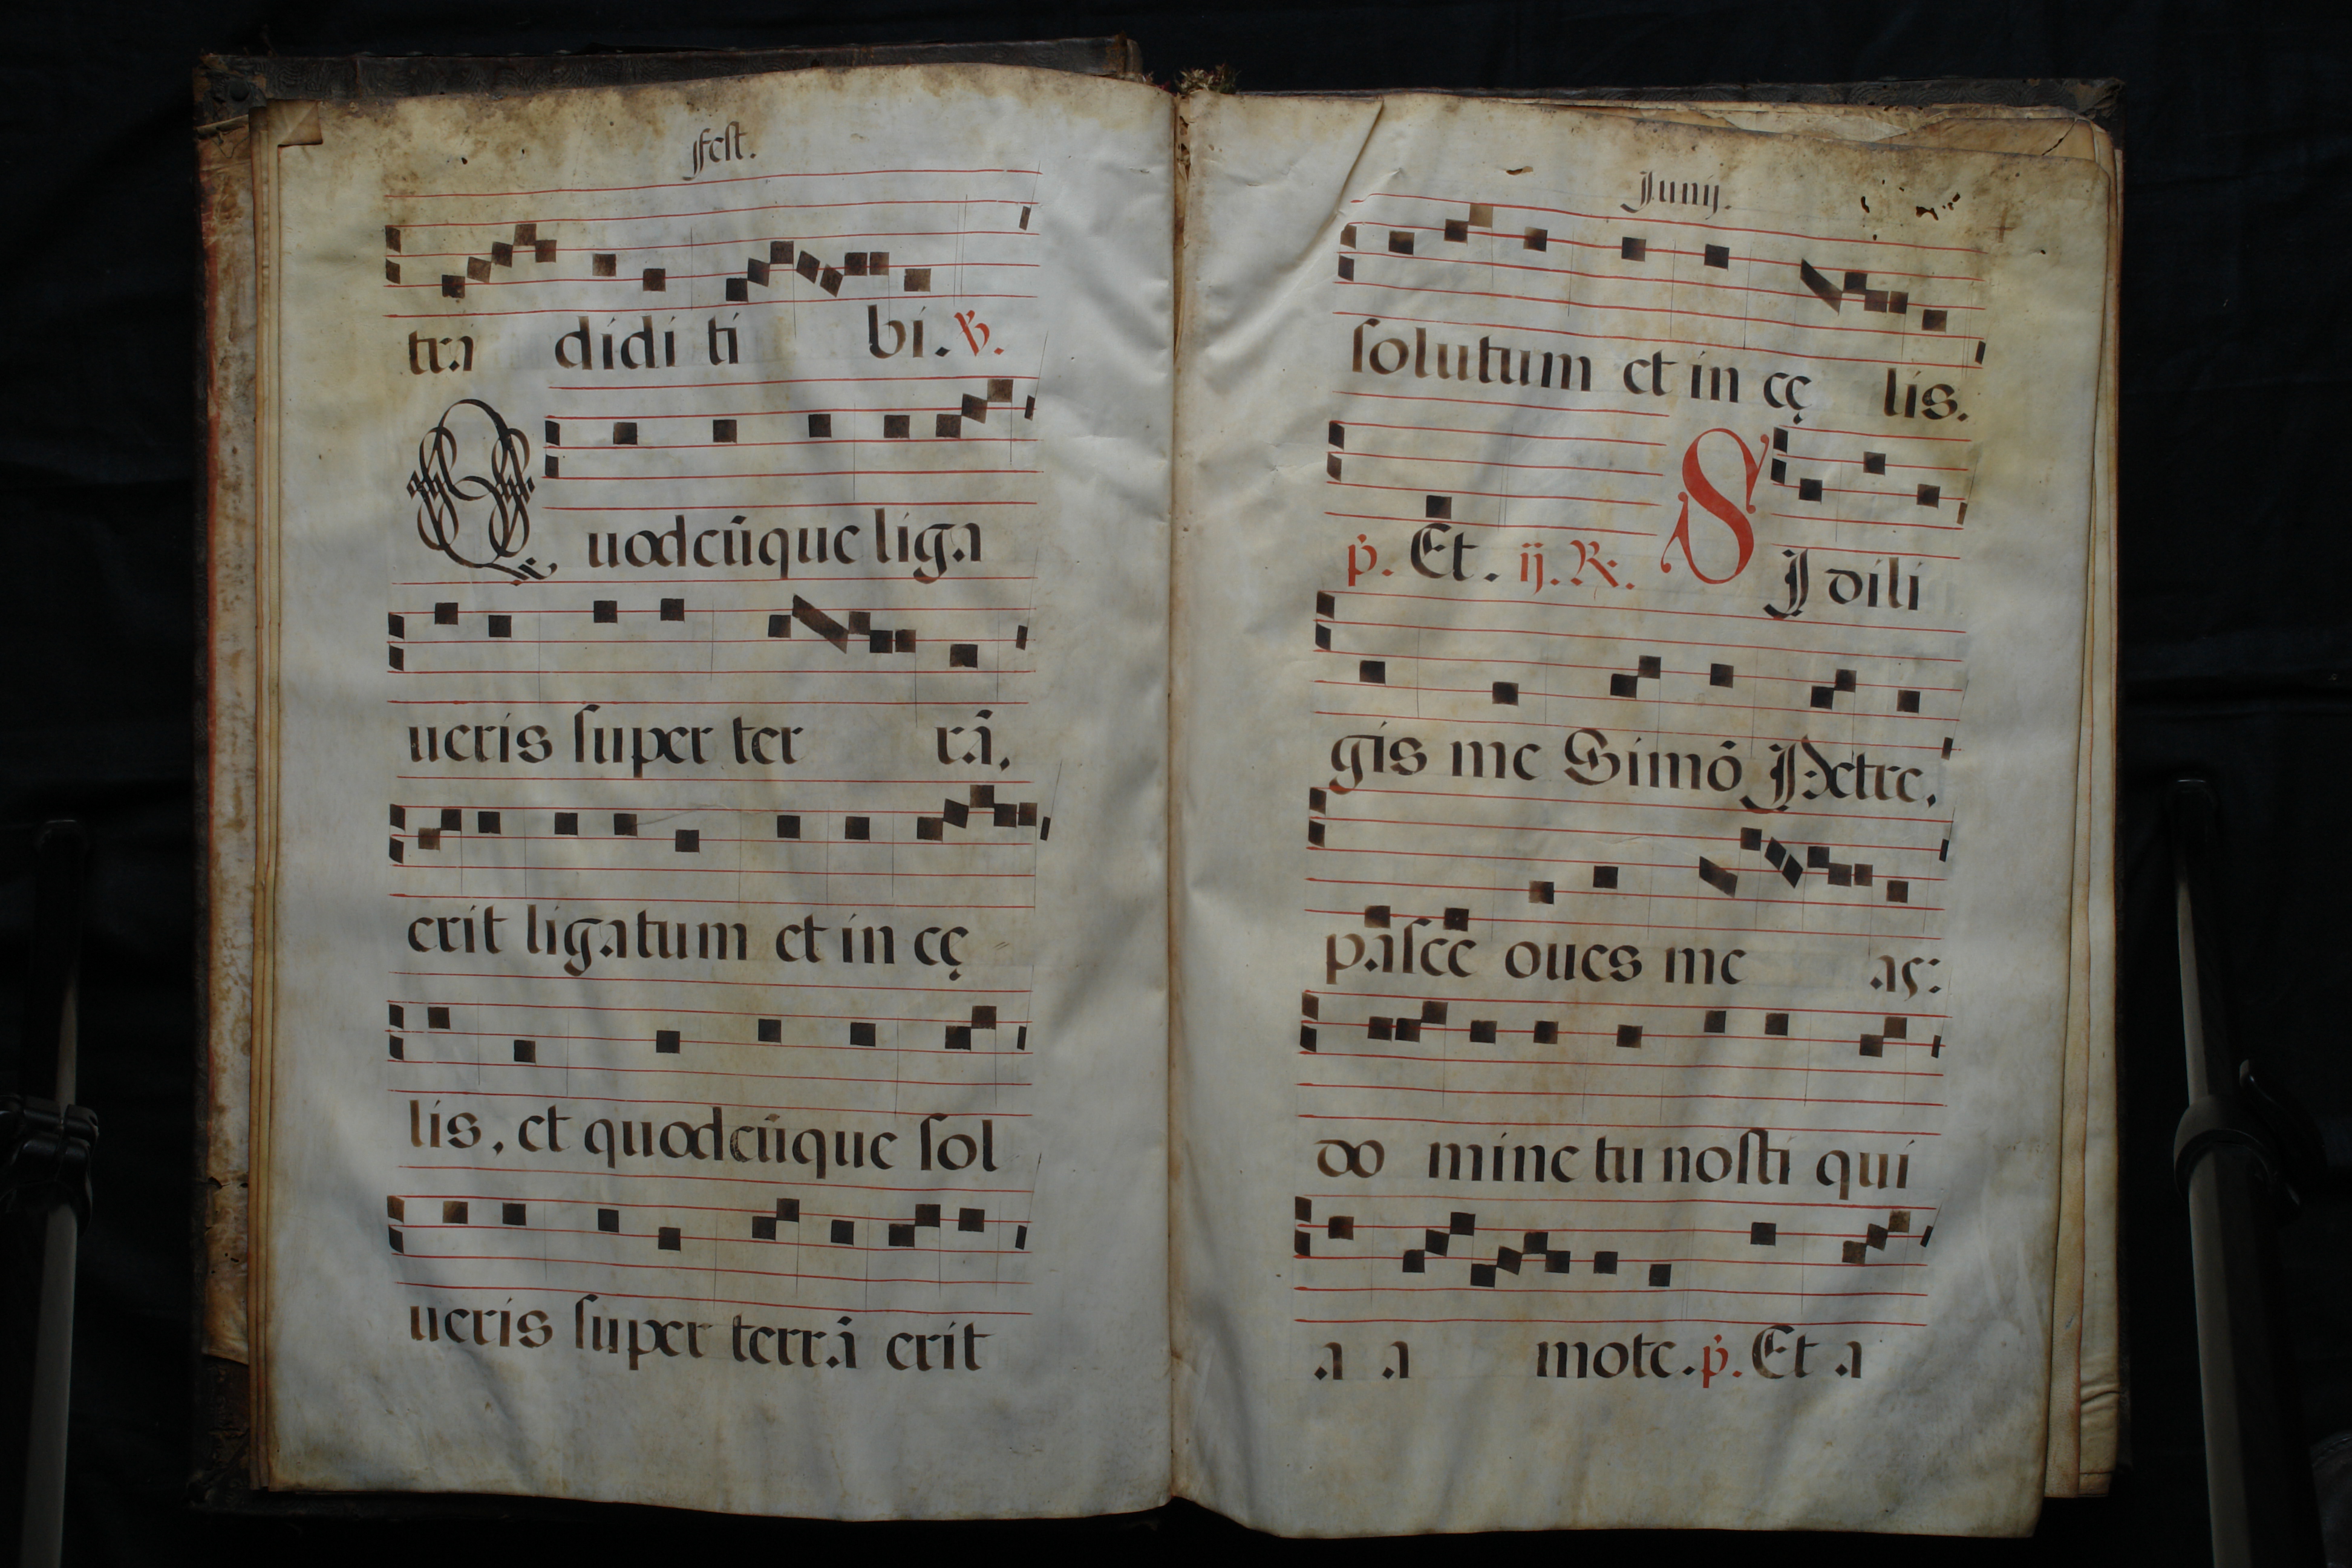 Fest.
tra didi ti bi. ℣.
Quodcũque liga
ueris ſuper ter rã,
erit ligatum et in cę
lis, et quodcũque ſol
ueris ſuper terrã erit
Junij.
ſolutum et in cę lis.
p̃. Et. ij. ℟. SI dili
gis me Simõ Petre,
paſce oues me as:
do mine tu noſti qui
a a mo te. p̃. Et a